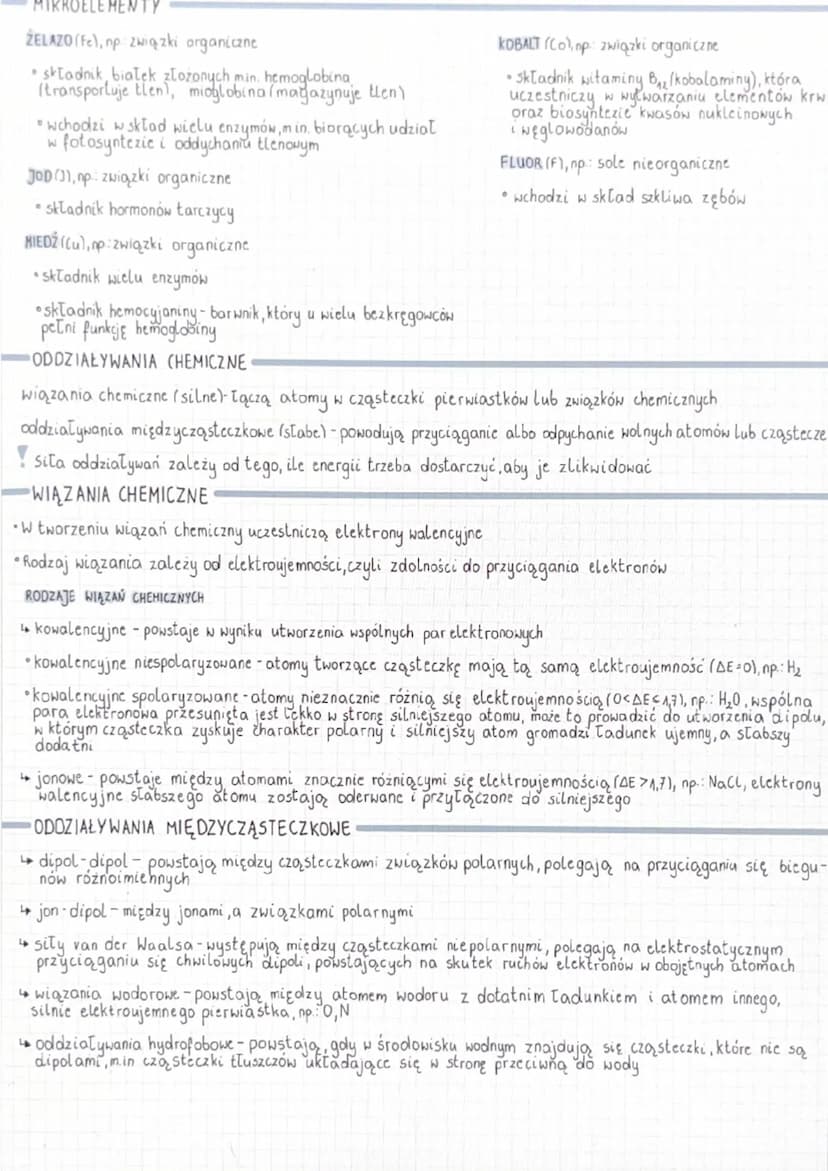 MIKROELEMENTY
ŻELAZO (Fe), np. związki organiczne
• składnik białek złożonych min. hemoglobina
(transportuje tlen), mioglobina (magazynuje tlen)
• wchodzi w skład wielu enzymów, m.in. biorących udział
w fotosyntezie i oddychaniu tlenowym
JOD (J), np.: związki organiczne
• składnik hormonów tarczycy
MIEDŹ (Cu), np.: związki organiczne
• składnik wielu enzymów
• składnik hemocyjaniny - barwnik, który u wielu bezkręgowców
pełni funkcję hemoglobiny
KOBALT (Co), np.: związki organiczne
• składnik witaminy B12 (kobalaminy), która
uczestniczy w wytwarzaniu elementów krw
oraz biosyntezie kwasów nukleinowych
i węglowodanów
FLUOR (F), np.: sole nieorganiczne
• wchodzi w skład szkliwa zębów
ODDZIAŁYWANIA CHEMICZNE
wiązania chemiczne (silne) - łączą atomy w cząsteczki pierwiastków lub związków chemicznych
oddziaływania międzycząsteczkowe (słabe) - powodują przyciąganie albo odpychanie wolnych atomów lub cząstecze
! siła oddziaływań zależy od tego, ile energii trzeba dostarczyć, aby je zlikwidować
WIĄZANIA CHEMICZNE
• W tworzeniu wiązań chemiczny uczestniczą elektrony walencyjne
• Rodzaj wiązania zależy od elektroujemności, czyli zdolności do przyciągania elektronów
RODZAJE WIĄZAŃ CHEMICZNYCH
↳ kowalencyjne - powstaje w wyniku utworzenia wspólnych par elektronowych
• kowalencyjne niespolaryzowane - atomy tworzące cząsteczkę mają tą samą elektroujemność (ΔE=0), np.: H₂
• kowalencyjne spolaryzowane - atomy nieznacznie różnią się elektroujemnością (0<ΔE≤1,7), np.: H₂O, wspólna
para elektronowa przesunięta jest lekko w stronę silniejszego atomu, może to prowadzić do utworzenia dipolu,
w którym cząsteczka zyskuje charakter polarny i silniejszy atom gromadzi ładunek ujemny, a słabszy
dodatni
↳ jonowe - powstaje między atomami znacznie różniącymi się elektroujemnością (ΔE >1,7), np.: NaCl, elektrony
walencyjne słabszego atomu zostają oderwane i przyłączone do silniejszego
ODDZIAŁYWANIA MIĘDZYCZĄSTECZKOWE
↳ dipol-dipol - powstają między cząsteczkami związków polarnych, polegają na przyciąganiu się biegu-
nów różnoimiennych
↳ jon-dipol - między jonami, a związkami polarnymi
↳ siły van der Waalsa - występują między cząsteczkami niepolarnymi, polegają na elektrostatycznym
przyciąganiu się chwilowych dipoli, powstających na skutek ruchów elektronów w obojętnych atomach
↳ wiązania wodorowe - powstają między atomem wodoru z dotatnim ładunkiem i atomem innego,
silnie elektroujemnego pierwiastka, np.: O, N
↳ oddziaływania hydrofobowe - powstają, gdy w środowisku wodnym znajdują się cząsteczki, które nie są
dipolami, m.in cząsteczki tłuszczów układające się w stronę przeciwną do wody